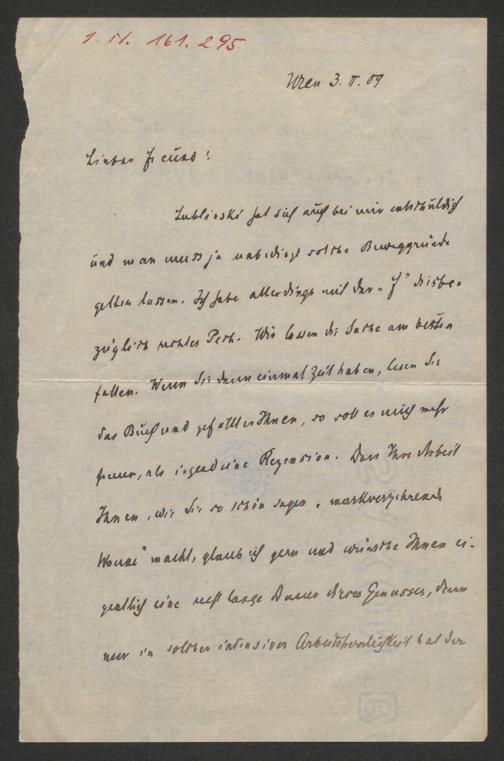 I. N. 161.295
Wien 3. II. 09
Lieber Freund!
Lublinski hat sich auch bei mir entschuldigt
und man muss ja unbedingt solche Beweggründe
gelten lassen. Ich habe allerdings mit der „J“ diesbe-
züglich rechtes Pech. Wir lassen die Sache am besten
fallen. Wenn Sie dann einmal Zeit haben, lesen Sie
das Buch und gefällt es Ihnen, so soll es mich mehr
freuen, als irgend eine Rezension. Dass Ihre Arbeit
Ihnen, wie Sie so schön sagen, „markverzehrende
Wonne“ macht, glaub ich gern und wünsche Ihnen ei-
gentlich eine recht lange Dauer dieses Genusses, denn
nur in solcher intensiver Arbeitsherrlichkeit hat der